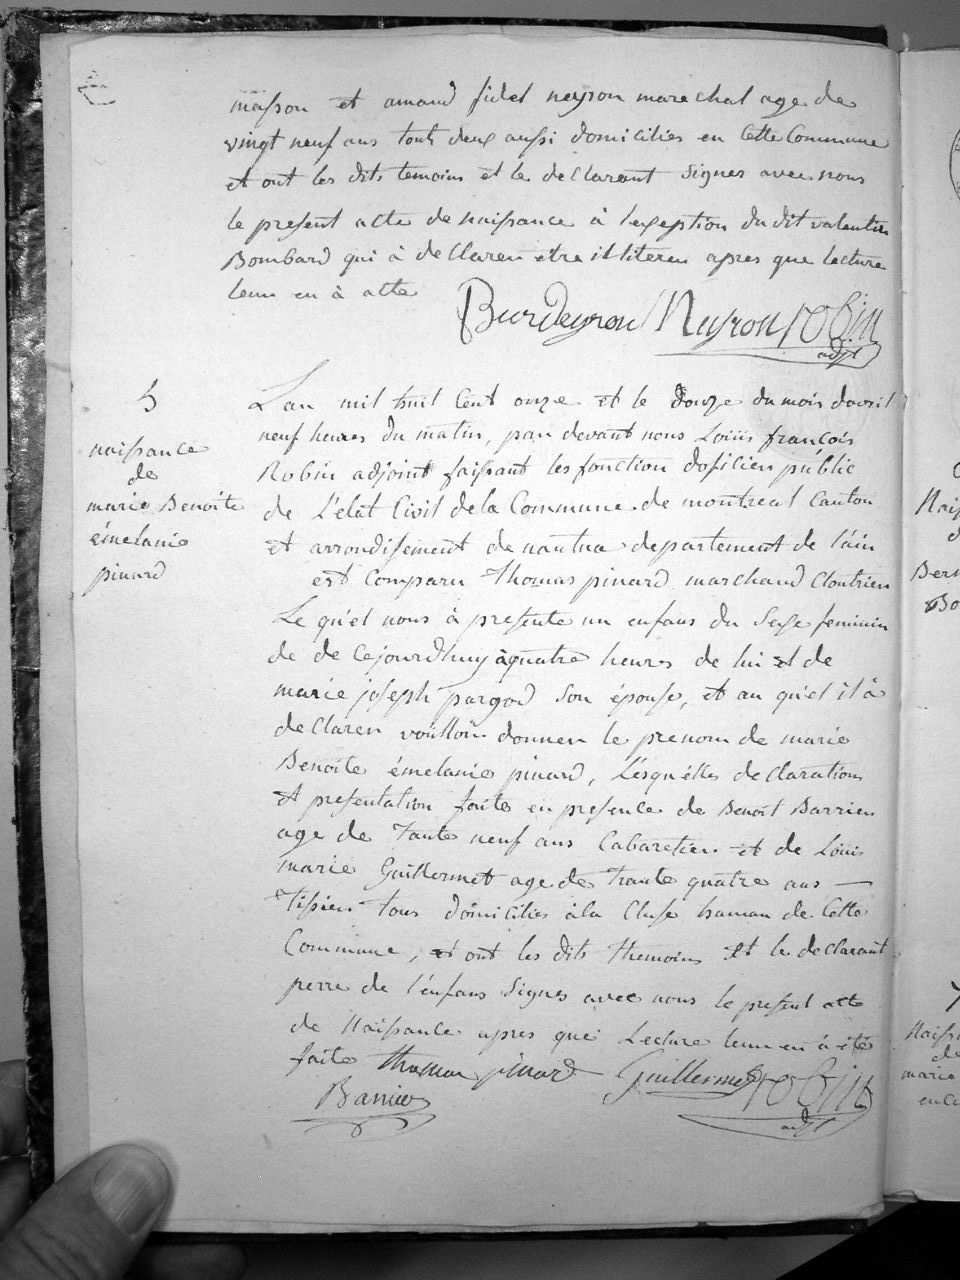 masson et amand fidel neyron marechal age de
vingt neuf ans tout deux aussi domicilies en Cette Commune
et ont les dits temoins et le declarant Signes avec nous
le present acte de naissance à lexseption du dit valentin
Bombard qui à declaren etre illiteren apres que lecture
leur en à ette
Burdeyron Neyron robin
adjt
5
naissance
de
marie Benoite
émelanie
pinard
Lan mil huil Cent onze et le douze du mois davril
neuf heures du matin, par devant nous Loüis françois
Robin adjoint faissant les fonction doficien públic
de L'élat Civil de la Commune de montreal Canton
et arrondisement de nantua departement de l'ain
est Comparu thomas pinard marchand Cloutrien
Le qu'el nous à presente un enfans du Sexe feminin
de de Cejourdhuy à quatre heures de lui et de
marie joseph pargod Son épouse, et au qu'el il à
declaren voulloir donnen le prenom de marie
Benoite émelanie pinard, Lesquélles declarations
et presentation faites en presence de Benoit Barrien
age de tante neuf ans Cabaretien et de Loüis
marie Guillermet age de trante quatre ans —
Tissien tous domicilies à la Cluse hamau de Cette
Commune, et ont les dits themoins et le declarant
perre de l'énfans Signes avec nous le present atte
de Naissance apres que Lecture leur en à été
faite thomas pinard Guillermet robin
Barrier
adjt
Naiss
de
marie